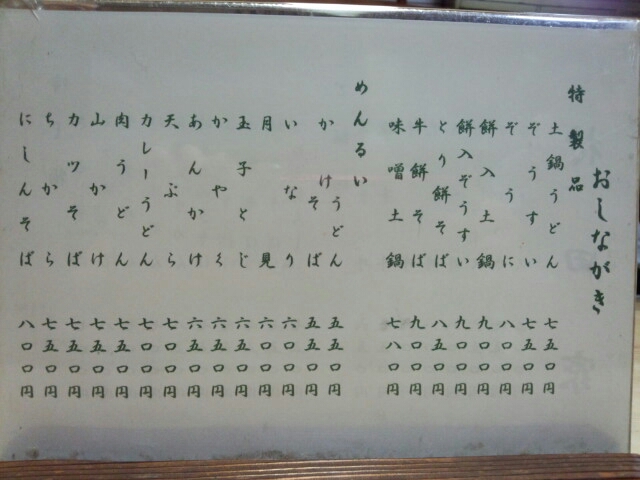 おしながき
特製品
土鍋うどん 七五〇円
ぞうすい 七五〇円
ぞうに 八〇〇円
餅入土鍋 九〇〇円
餅入ぞうすい 九〇〇円
とり餅そば 八五〇円
牛餅そば 九〇〇円
味噌土鍋 七八〇円
めんるい
かけ
うどん 五五〇円
そば 五五〇円
いなり 六〇〇円
月見 六〇〇円
玉子とじ 六五〇円
かやく 六五〇円
あんかけ 六五〇円
天ぷら 七〇〇円
カレーうどん 七〇〇円
肉うどん 七五〇円
山かけ 七五〇円
カツそば 七五〇円
ちから 七五〇円
にしんそば 八〇〇円